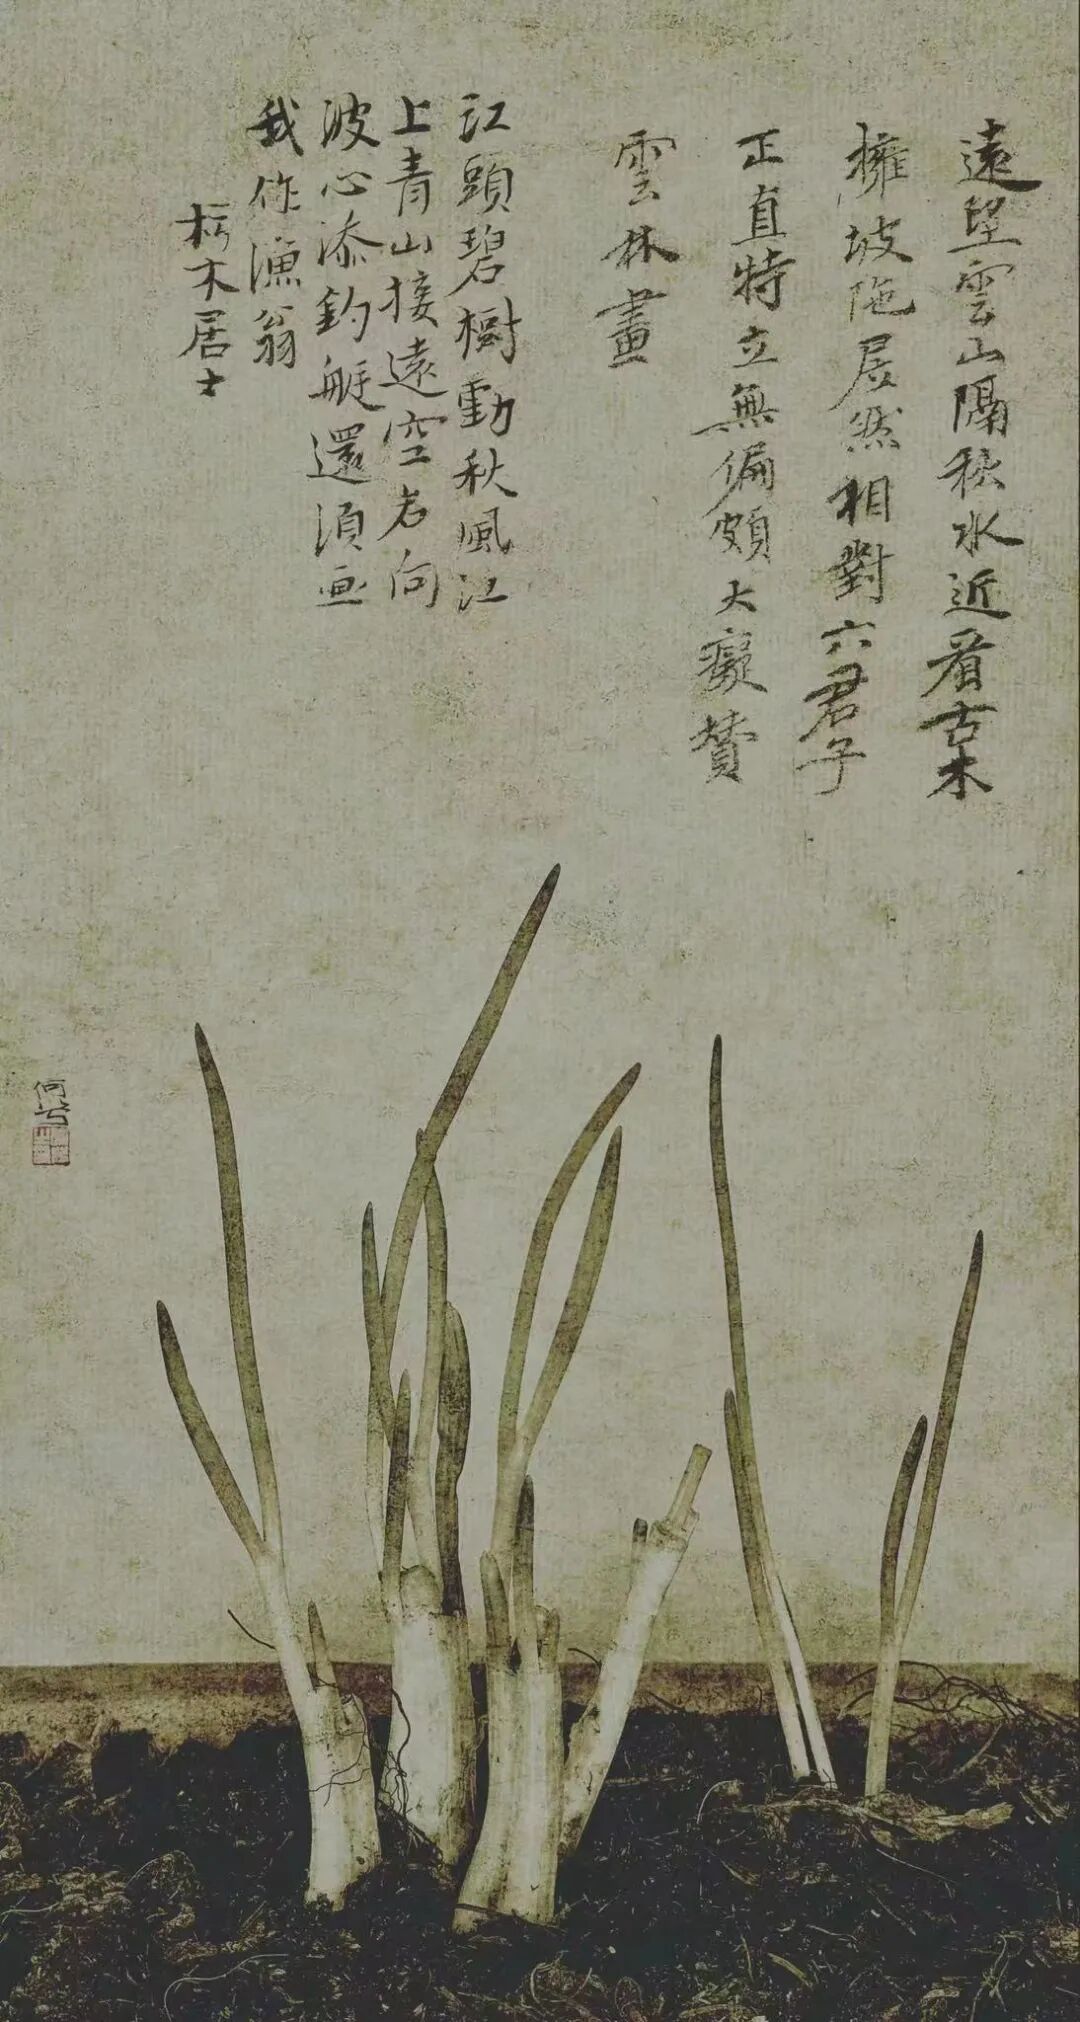 遠望雲山隔秋水近看古木
擁坡陁居然相對六君子
正直特立無偏頗大癡贊
雲林畫
江頭碧樹動秋風江
上青山接遠空若向
波心添釣艇還須画
我作漁翁
朽木居士
何